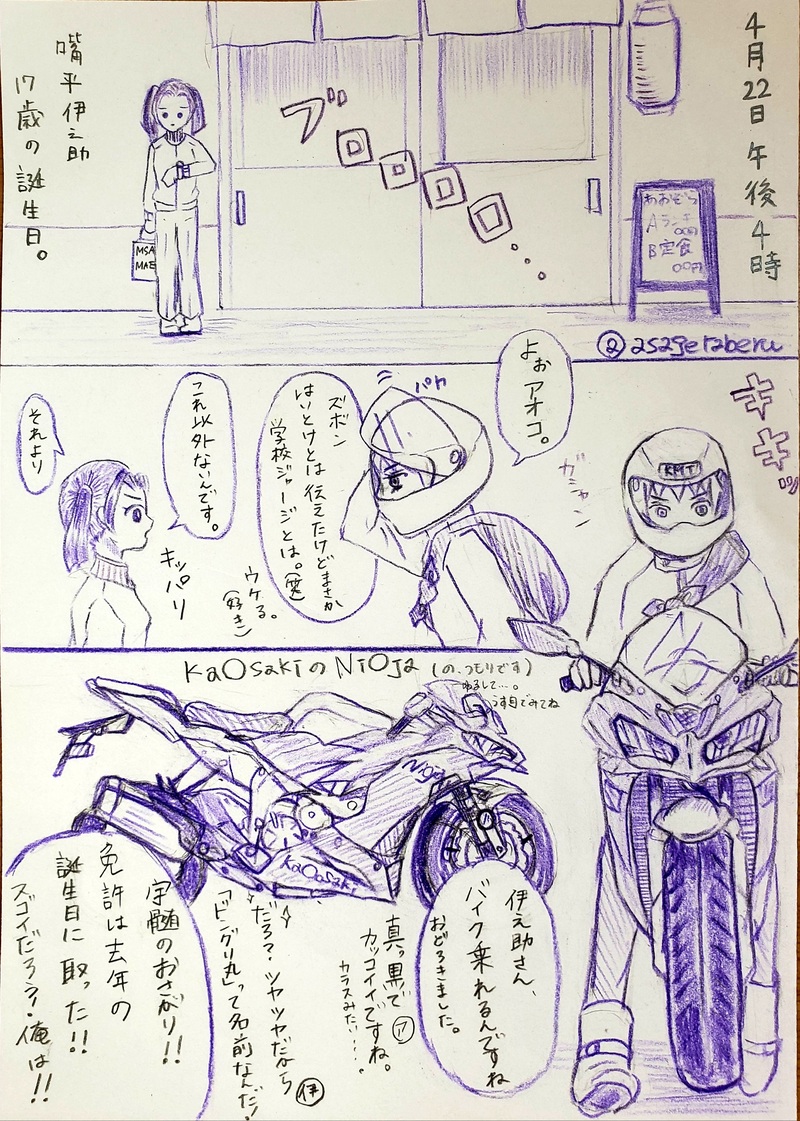 4月22日 午後 4時
嘴平伊之助
17歳の誕生日。
ブロロロロ...
MSA
MAE
あおぞら
Aランチ
〇〇円
B定食
〇〇円
② asagetaberu
キキッ
ガシャン
KMT
よぉ アオコ。
パカ
ズボン
はいとけとは 伝えたけど まさか
学校ジャージとは。(笑)
ウケる。
(好き)
これ以外ないんです。
キッパリ
それより
KaOsaki の NiOja (の、つもりです)
ゆるして…。
うす目でみてね
Ninja
KaOsaki
伊之助さん、
バイク乗れるんですね
おどろきました。
真っ黒で
カッコイイですね。
カラスみたい…. ア
だろ?ツヤツヤだから
「ビングリ丸」って名前なんだ! 伊
宇髄のおさがり!!
免許は去年の
誕生日に 取った!!
スゴイだろう!俺は!!